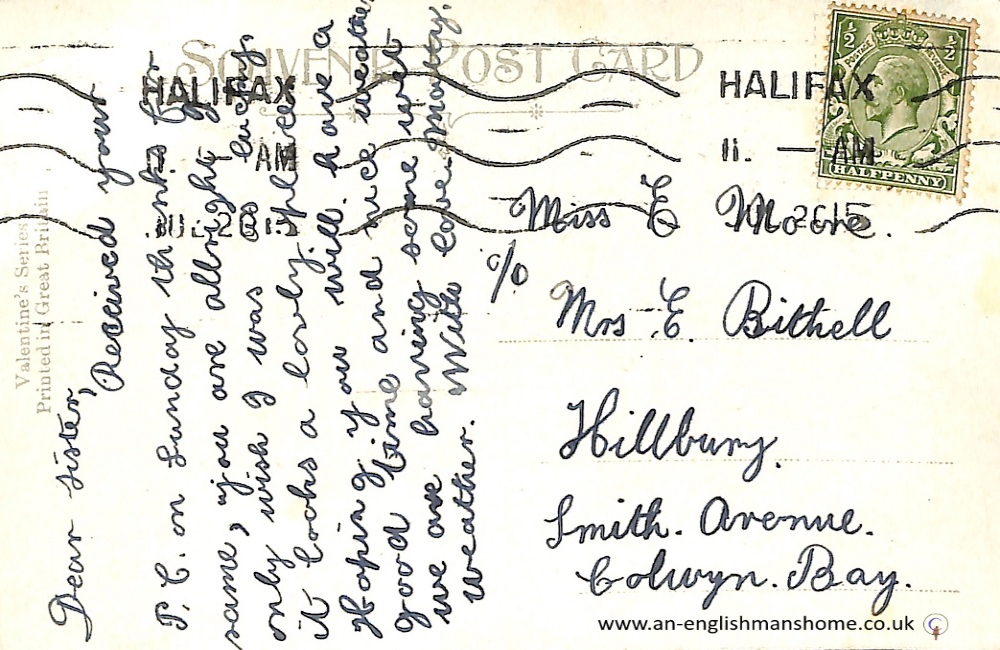 SOUVENIR POST CARD
Valentine's Series
Printed in Great Britain
HALIFAX
AM
HALIFAX
11. — AM
½ ½
HALFPENNY
Dear Sister,
Received your
P.C. on Sunday thanks for
same, you are allright
only wish I was as lucky,
it looks a lovely place
Hoping you will have a
good time and nice weather
we are having some wet
weather. With love. Matty.
Miss E Moore.
c/o
Mrs E. Bithell
Hillbury.
Smith. Avenue.
Colwyn. Bay.
www.an-englishmanshome.co.uk